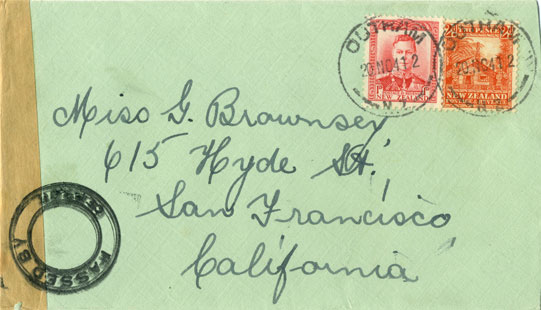 OUTRAM
20 NO 41 2
OUTRAM
20 NO 41 2
NEW ZEALAND
Miss G. Brownsey
615 Hyde St,
San Francisco
California
PASSED BY